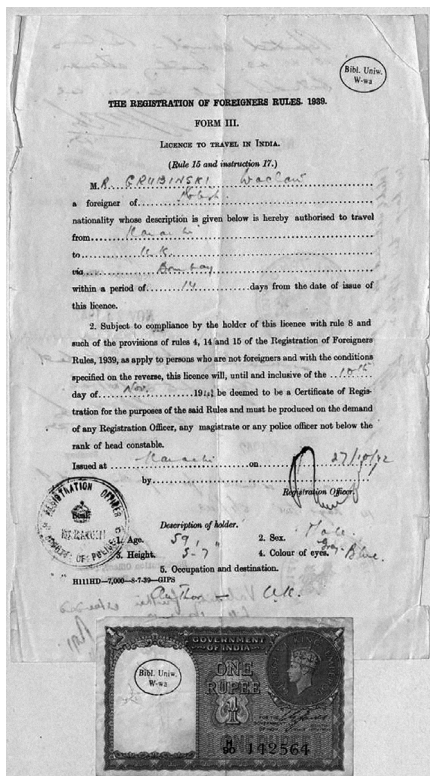 Bibl. Uniw.
W-wa
THE REGISTRATION OF FOREIGNERS RULES, 1939.
FORM III.
LICENCE TO TRAVEL IN INDIA.
(Rule 15 and instruction 17.)
M.R. GRUBINSKI Wacław
a foreigner of Polish
nationality whose description is given below is hereby authorised to travel
from Karachi
to U.K.
via Bombay
within a period of 14 days from the date of issue of
this licence.
2. Subject to compliance by the holder of this licence with rule 8 and
such of the provisions of rules 4, 14 and 15 of the Registration of Foreigners
Rules, 1939, as apply to persons who are not foreigners and with the conditions
specified on the reverse, this licence will, until and inclusive of the 10th
day of Nov. 1942 be deemed to be a Certificate of Regis-
tration for the purposes of the said Rules and must be produced on the demand
of any Registration Officer, any magistrate or any police officer not below the
rank of head constable.
Issued at Karachi on 27/10/42
by
Registration Officer.
REGISTRATION OFFICER
KARACHI
OF POLICE
Description of holder.
1. Age. 59, 2. Sex. Male
3. Height. 5-7 4. Colour of eyes. Grey Blue.
5. Occupation and destination.
H111HD—7,000—8-7-39—GIPS
Author — U.K.
GOVERNMENT
OF INDIA
Bibl. Uniw.
W-wa
ONE
RUPEE
1
142564
ONE RUPEE